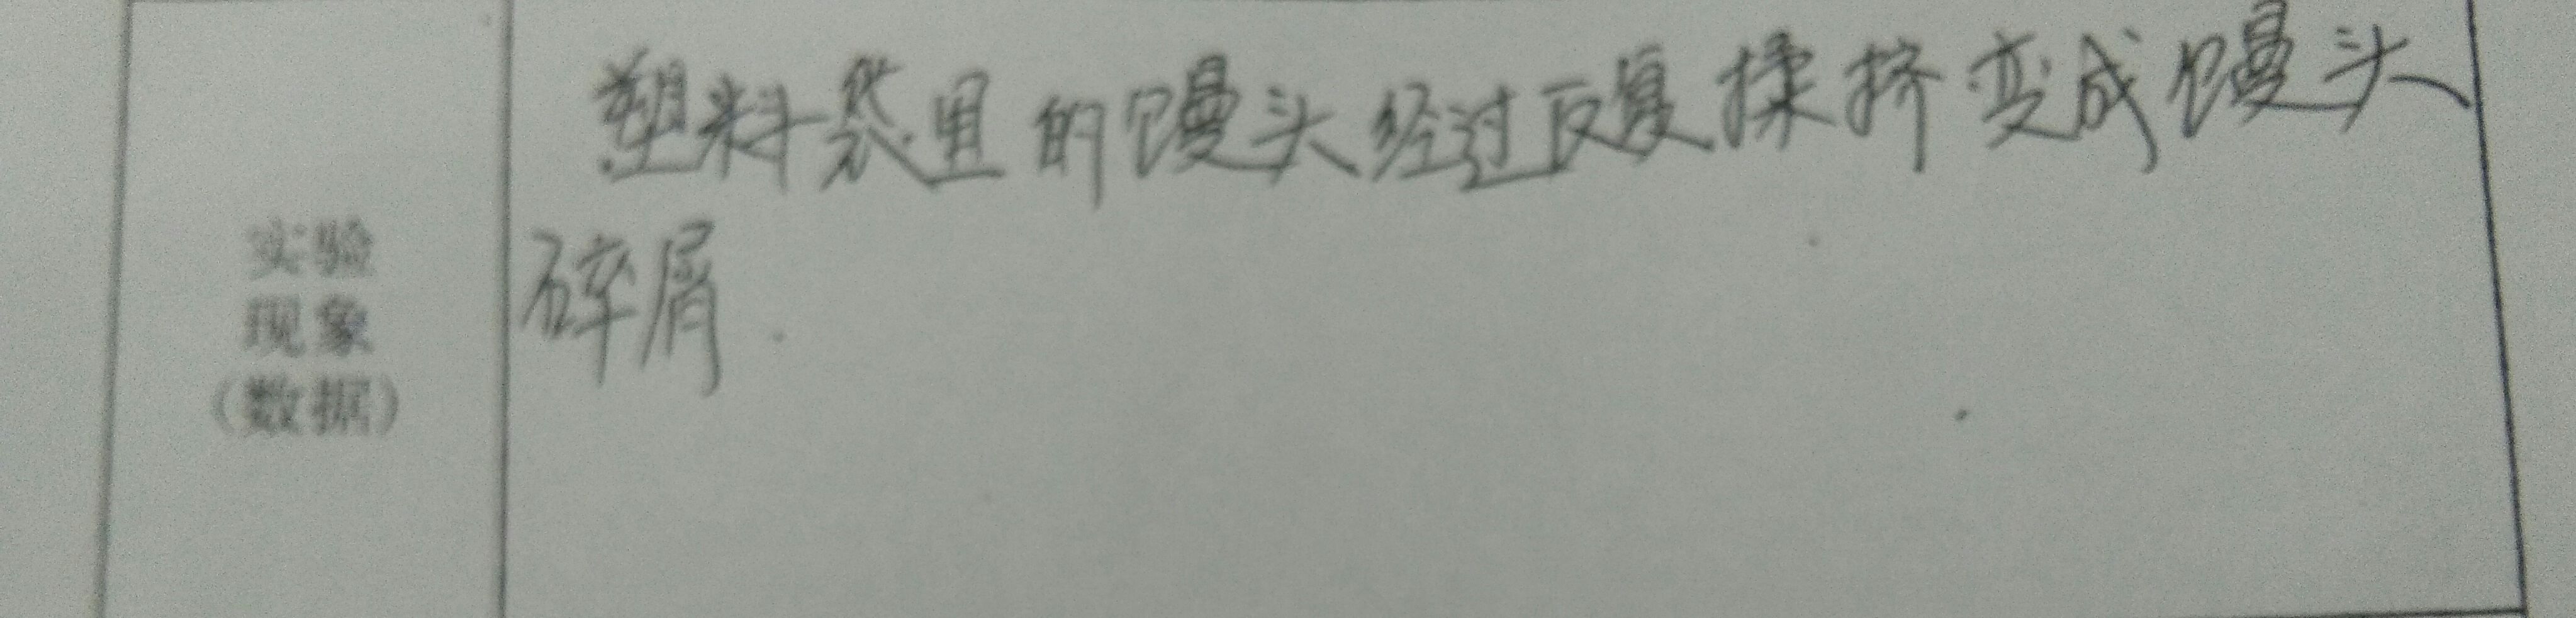 塑料袋里的馒头经过反复揉挤变成馒头
碎屑.
实验
现象
(数据)